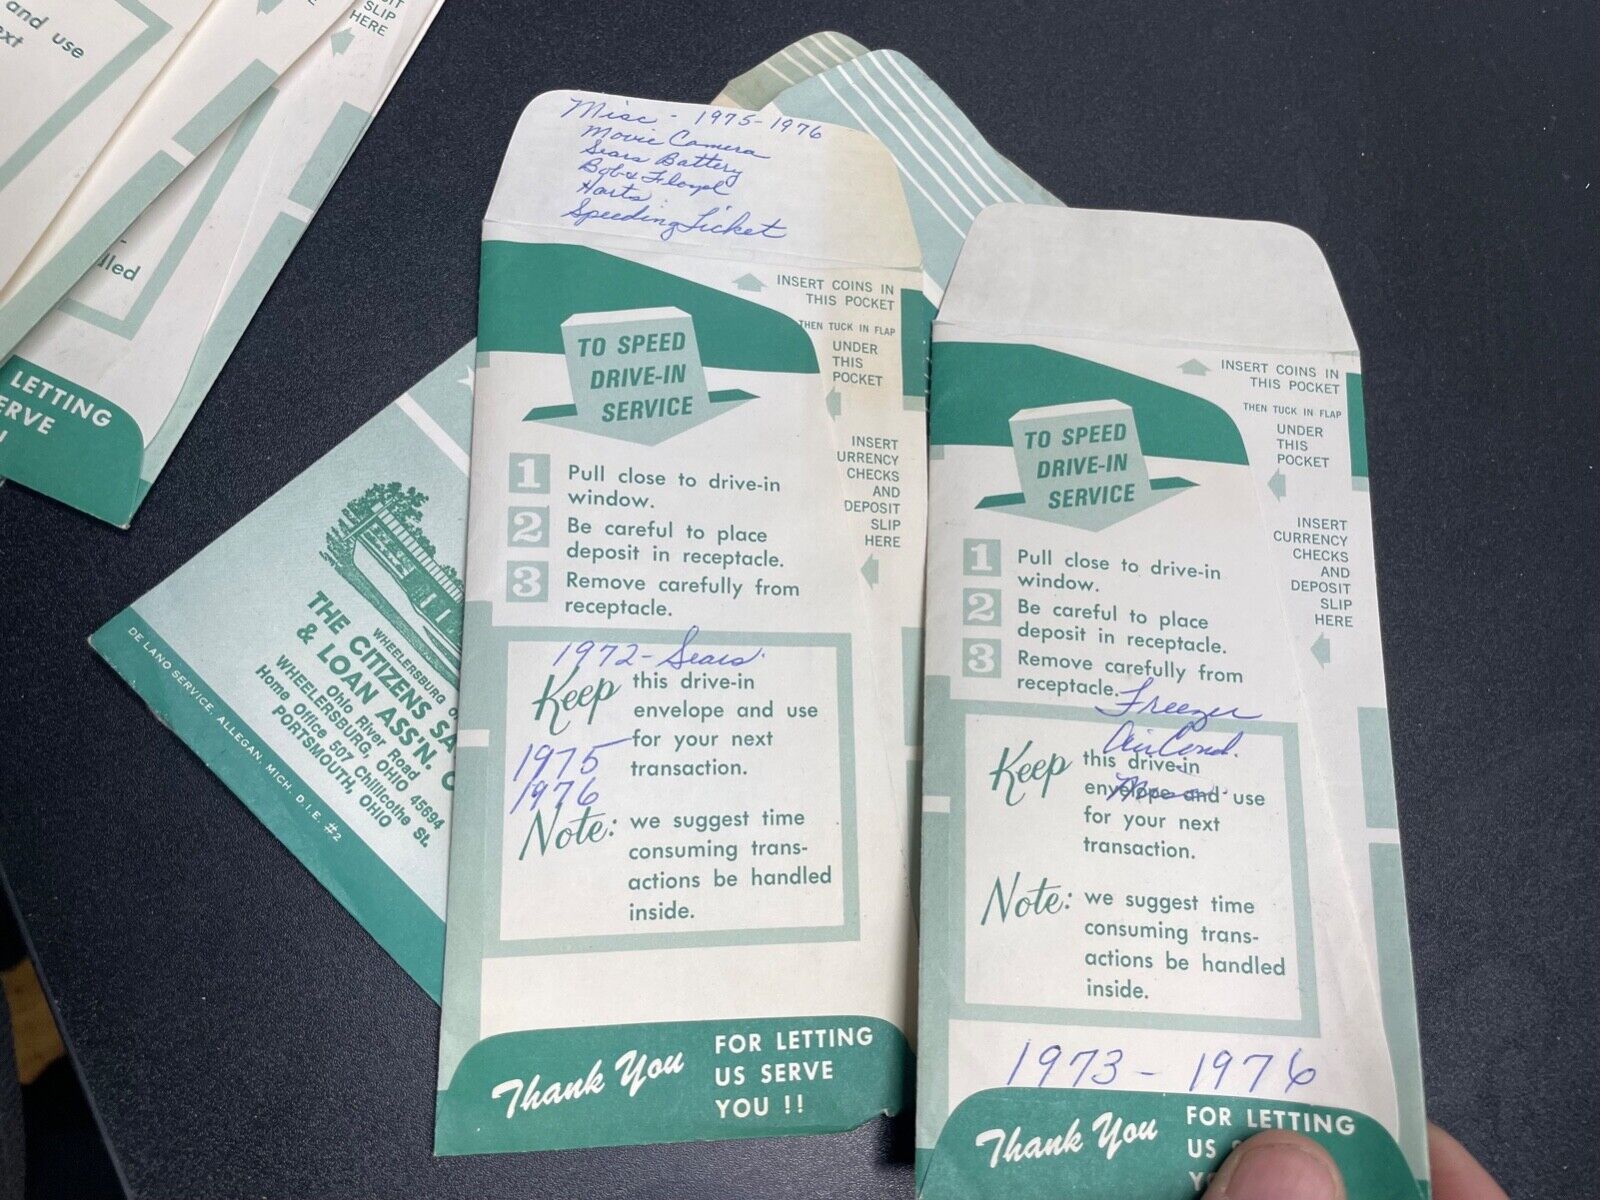 and use
ext
SIT
SLIP
HERE
dled
LETTING
ERVE
!
DE LANO SERVICE, ALLEGAN, MICH. D.I.E. #2
WHEELERSBURG
THE CITIZENS SA
& LOAN ASS'N. C
Ohio River Road
WHEELERSBURG, OHIO 45694
Home Office 507 Chillicothe St.
PORTSMOUTH, OHIO
Misc - 1975-1976
Movie Camera
Sears Battery
Bob & Floyd
Harts
Speeding Ticket
INSERT COINS IN
THIS POCKET
THEN TUCK IN FLAP
UNDER
THIS
POCKET
INSERT
URRENCY
CHECKS
AND
DEPOSIT
SLIP
HERE
TO SPEED
DRIVE-IN
SERVICE
1 Pull close to drive-in
window.
2 Be careful to place
deposit in receptacle.
3 Remove carefully from
receptacle.
1972 - Sears
Keep this drive-in
envelope and use
for your next
transaction.
1975
1976
Note: we suggest time
consuming trans-
actions be handled
inside.
Thank You FOR LETTING
US SERVE
YOU !!
INSERT COINS IN
THIS POCKET
THEN TUCK IN FLAP
UNDER
THIS
POCKET
INSERT
CURRENCY
CHECKS
AND
DEPOSIT
SLIP
HERE
TO SPEED
DRIVE-IN
SERVICE
1 Pull close to drive-in
window.
2 Be careful to place
deposit in receptacle.
3 Remove carefully from
receptacle.
Freezer
Air Cond.
Keep this drive-in
envelope and use
for your next
transaction.
Note: we suggest time
consuming trans-
actions be handled
inside.
1973 - 1976
Thank You FOR LETTING
US S
Y